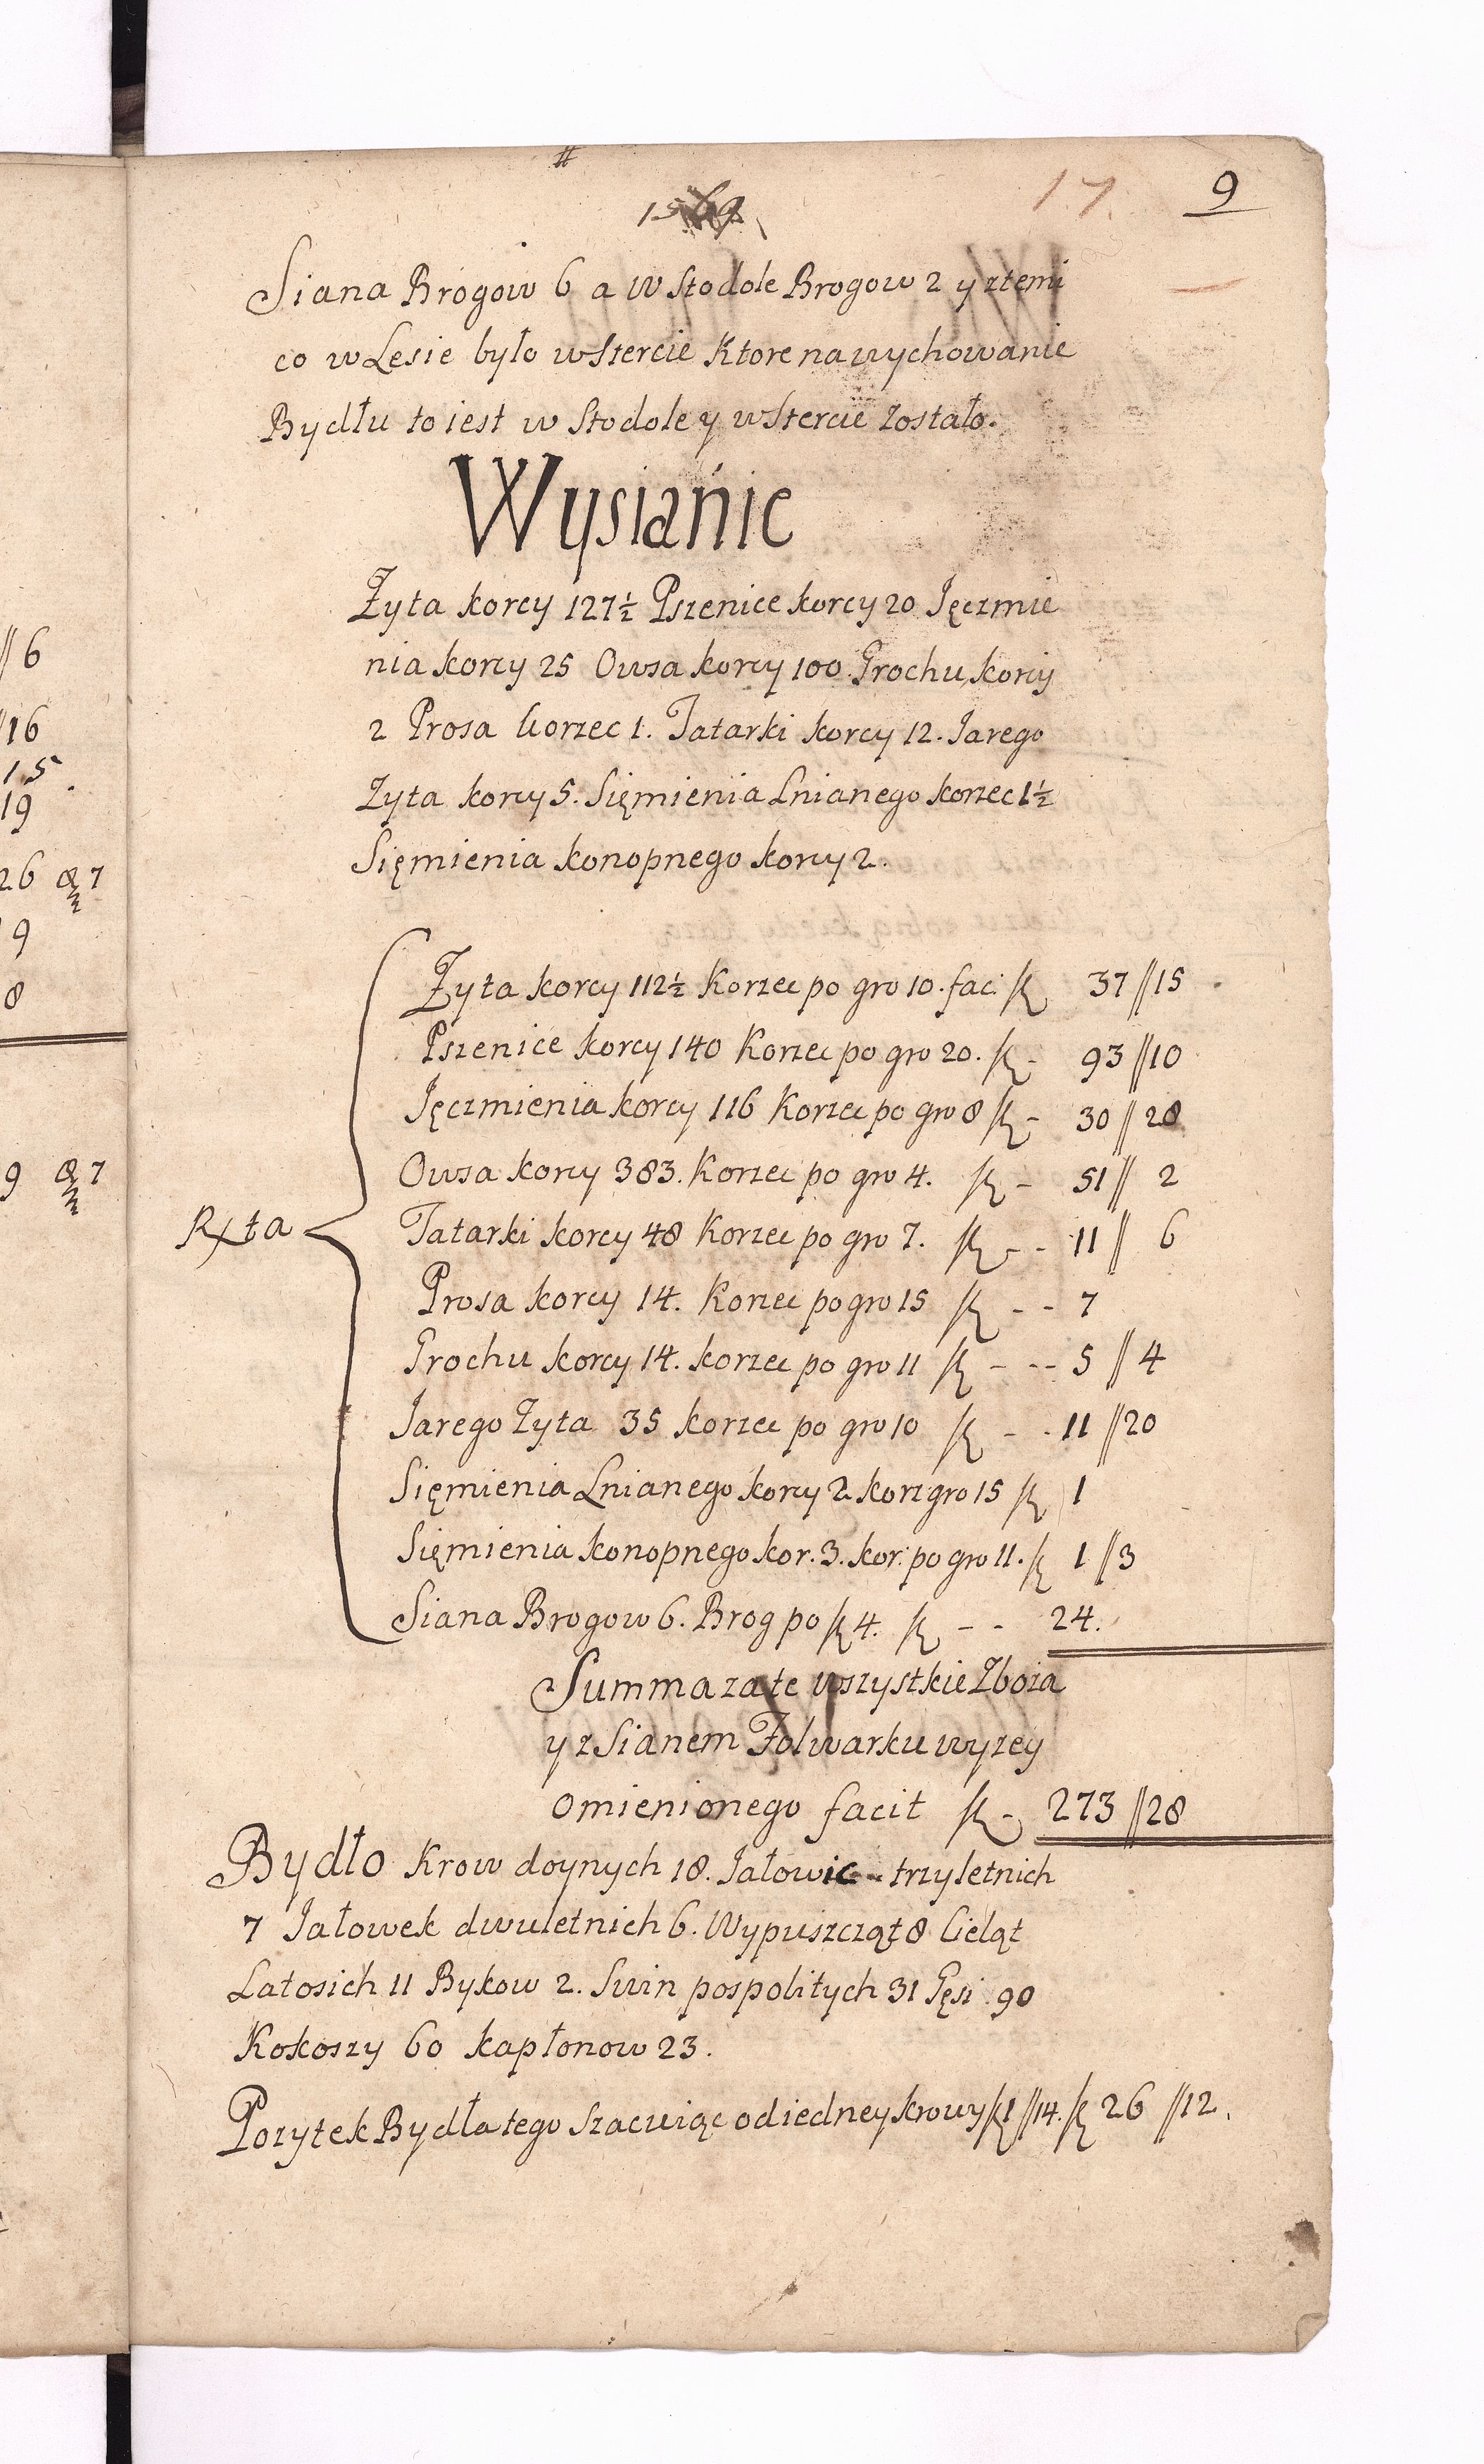 17. 9
Siana Brogow 6 a w Stodole Brogow 2 y ztemi
co w Lesie było w Stercie Ktore na wychowanie
Bydłu to iest w Stodole y w Stercie zostało.
Wysianie
Żyta korcy 127½ Pszenice korcy 20 Jęczmie
nia korcy 25 Owsa korcy 100. Grochu korcy
2 Prosa korzec 1. Tatarki korcy 12. Jarego
Zyta korcy 5. Sięmienia Lnianego korzec 1½
Sięmienia konopnego korcy 2.
Żyta korcy 112½ Korzec po gro 10. fac: 37 // 15
Pszenice korcy 140 Korzec po gro 20. 93 // 10
Jęczmienia korcy 116 Korzec po gro 8 - 30 // 28
Owsa korcy 383. Korzec po gro 4. - 51 // 2
Rxta Tatarki korcy 48 Korzec po gro 7. - - 11 // 6
Prosa korcy 14. Korzec po gro 15 - - 7
Grochu korcy 14. korzec po gro 11 - -- 5 // 4
Jarego Zyta 35 korzec po gro 10 - - 11 // 20
Sięmienia Lnianego korcy 2 korz gro 15 1
Sięmienia konopnego kor. 3. kor: po gro 11. 1 // 3
Siana Brogow 6. Brog po 4. - - 24.
Summa za te wszystkie Zboza
y z Sianem Folwarku wyzey
omienionego facit - 273 // 28
Bydło Krow doynych 18. Jałowic - trzyletnich
7 Jałowek dwuletnich 6. Wypuszcząt 8 Cieląt
Latosich 11 Bykow 2. Swin pospolitych 31 Gęsi 90
Kokoszy 60 kapłonow 23.
Pozytek Bydła tego szacuiąc od iedney krowy 1 // 14. 26 // 12.
// 6
// 16
15.
19
26 7
19
8
9 7